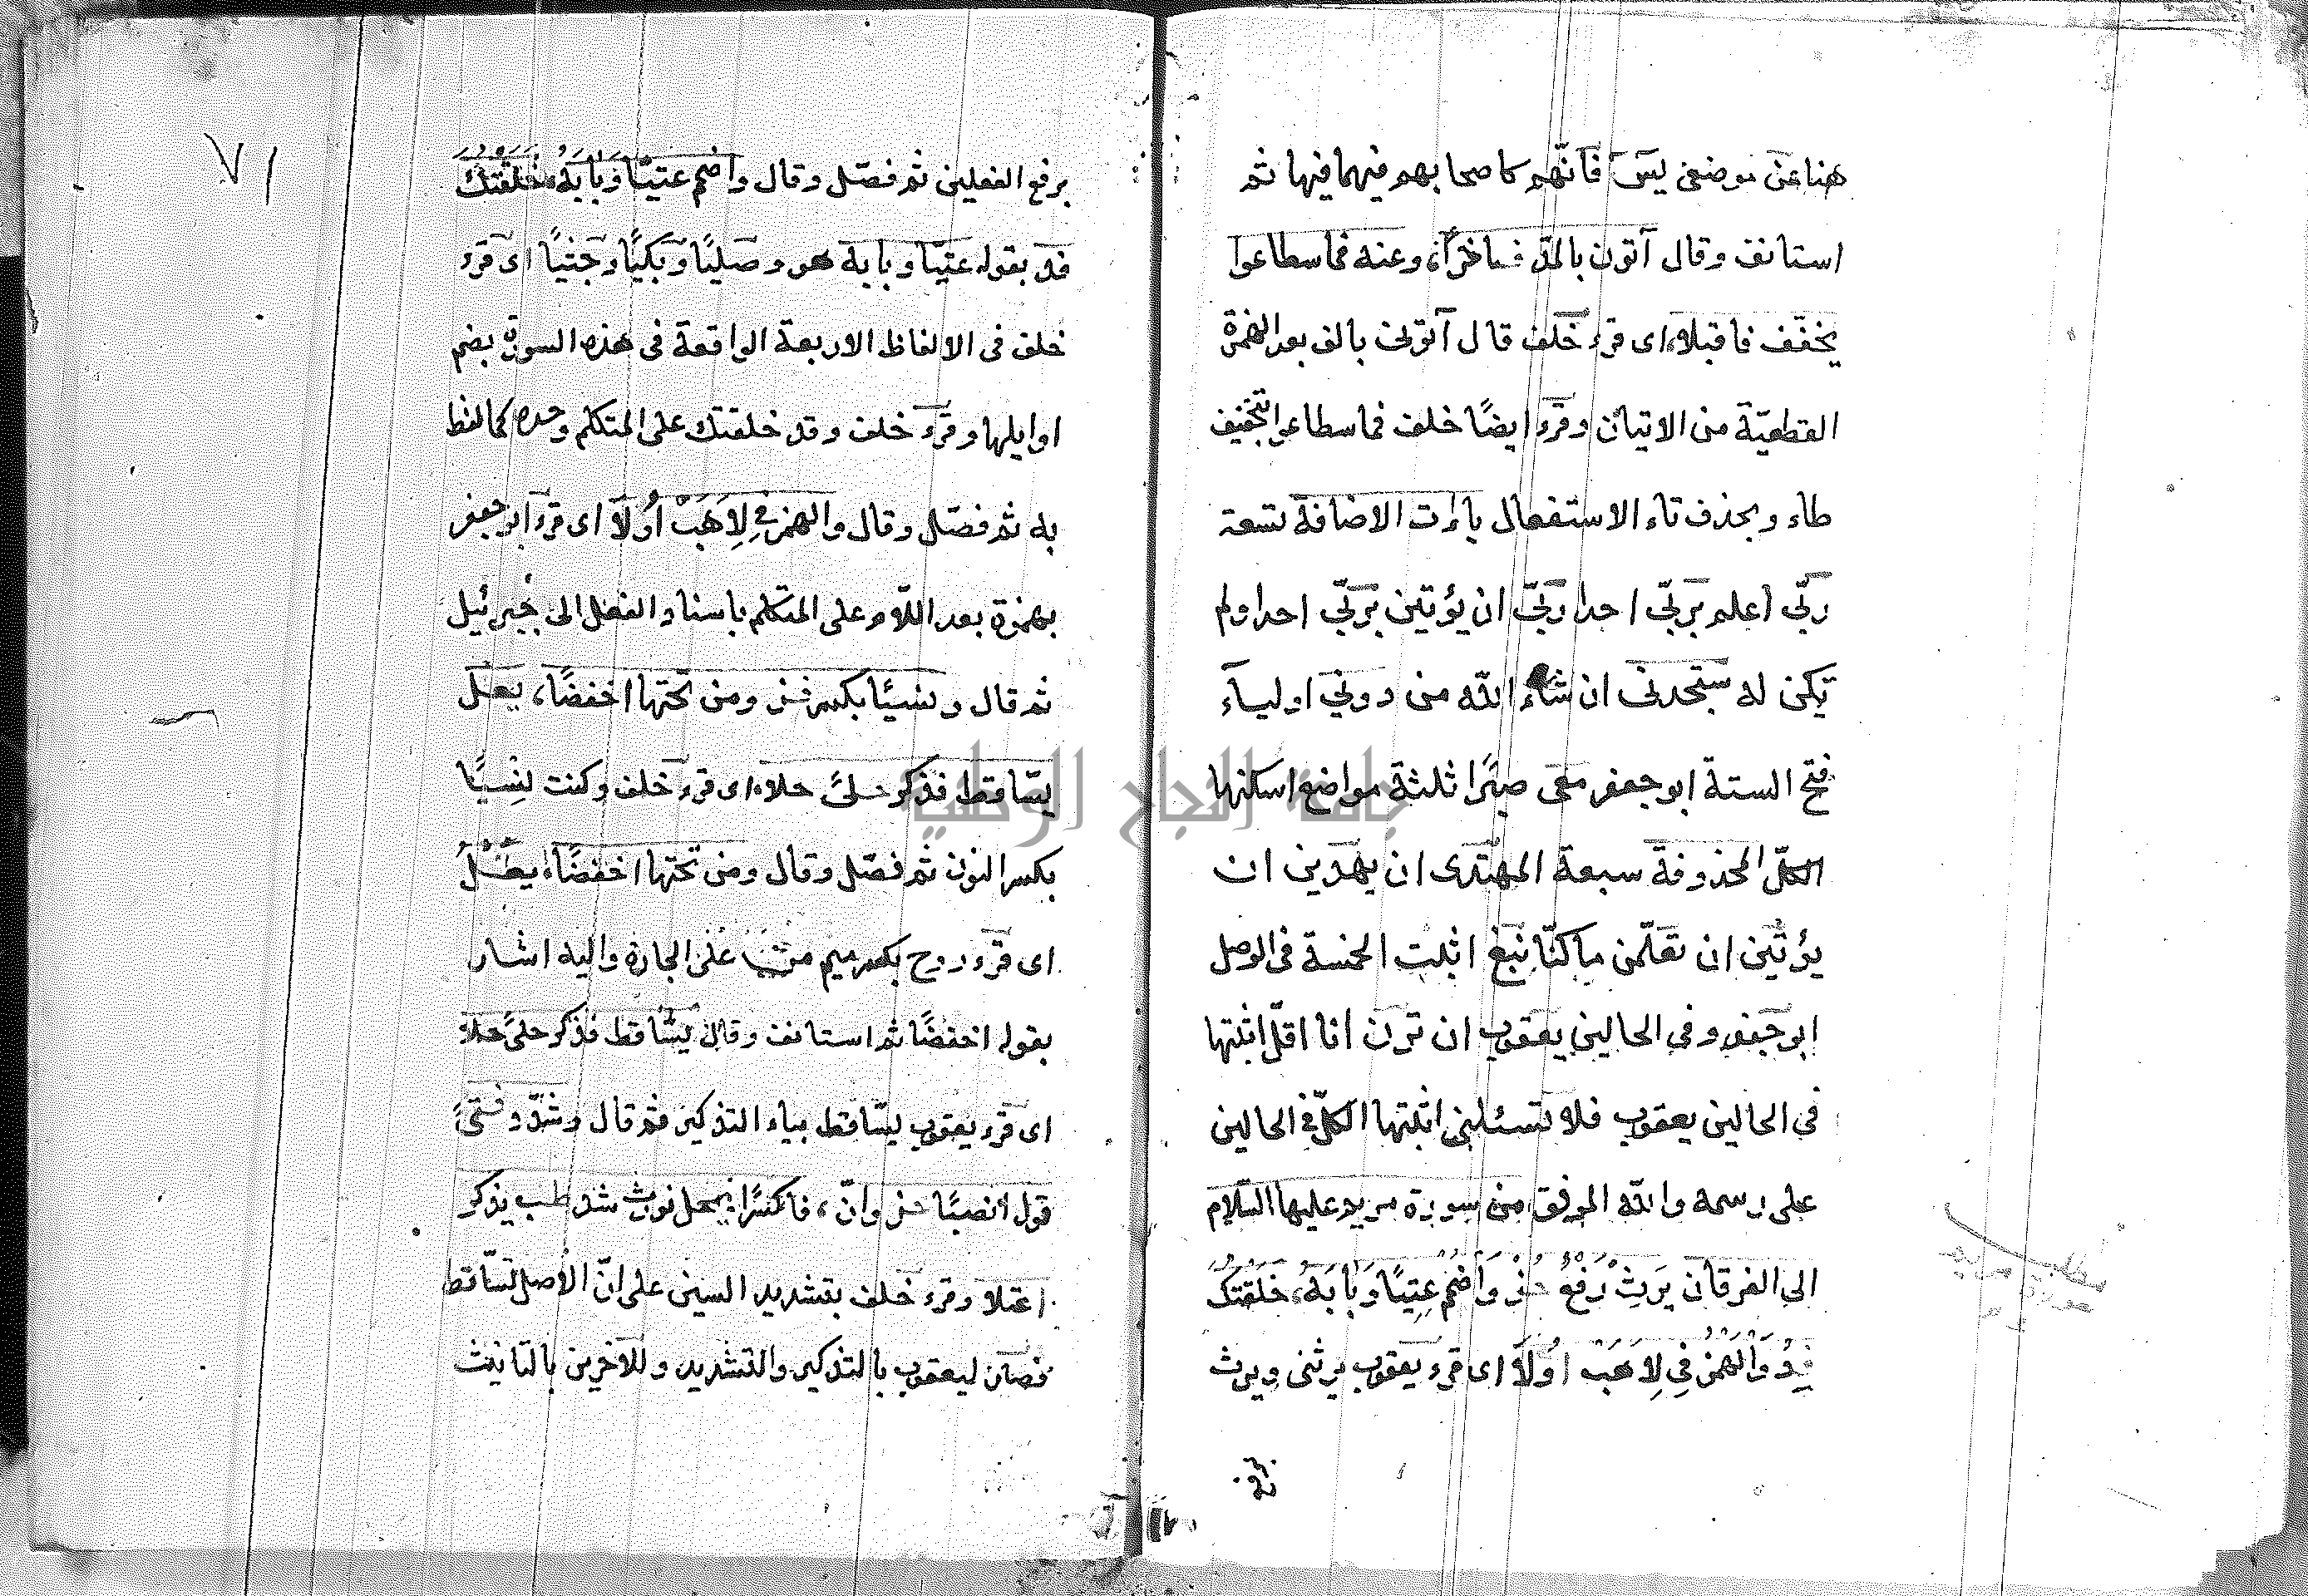 هنا عن موضعى يس فانّهم كاصحابهم فيهما فيها ثم
استانف وقال آتون بالمدّ فاخرًا، وعنه فما سطاعوا
يخفّف فاقبلاء اى قرء خلف قال آتونى بالف بعد الهمزة
القطعيّة من الاتيان وقرء ايضًا خلف فما سطاعوا بتخفيف
طاء وبحذف تاء الاستفعال ياءات الاضافة تسعة
ربّي اعلم بربّي احدا ربّي ان يؤتين بربّي احدا ولم
تكن له ستجدنى ان شاء الله من دوني اولياء
فتح الستة ابو جعفر معى صبرًا ثلثة مواضع اسكنها
الكلّ المحذوفة سبعة المهتدى ان يهدين ان
يؤتين ان تعلّمن ما كنّا نبغ اثبت الخمسة فى الوصل
ابو جعفر وفي الحالين يعقوب ان ترن انا اقلّ اثبتها
في الحالين يعقوب فلا تسئلني اثبتها الكلّ في الحالين
على رسمه والله الموفق من سورة مريم عليها السّلام
الى الفرقان يَرِثْ رَفْعُ حُز وَاضْمُمْ عِتِيًا وَبَابَهُ، خَلَقْتُكَ
فِدْ وَالْهَمْزُ فِي لِاَهَبْ اُولَا اى قرء يعقوب يرثنى ويرث
برفع الفعلين ثم فصّل وقال واضمم عتيّا وبابه، خلقتك
فد بقوله عتيّا وبابه هو وصليًا وبكيًا وجثيًا اى قرء
خلف فى الالفاظ الاربعة الواقعة فى هذه السورة بضم
اوايلها وقرء خلف وقد خلقتك على المتكلم وحده كما لفظ
به ثم فصّل وقال والهمز فِي لِاَهَبْ اُولَا اى قرء ابو جعفر
بهمزة بعد اللّام على المتكلم باسناد الفعل الى جبرئيل
ثم قال ونسيًا بكسر فز ومن تحتها اخفضًا، يعل
يسّاقط فذكر حلىً حلاء اى قرء خلف وكنت نِسيًا
بكسر النون ثم فصّل وقال ومن تحتها اخفضًا، يعل
اى قرء روح بكسر ميم من على الجارة واليه اشار
بقوله اخفضًا ثم استانف وقال يسّاقط فذكر حلىً حلا
اى قرء يعقوب يسّاقط بياء التذكير ثم قال وشدّ فتىً
قول انصبًا حز وانّ، فاكسرًا يحل نورث شد طب يذكر
اعتلا وقرء خلف بتشديد السين على انّ الاصل تتساقط
فصار ليعقوب بالتذكير والتشديد وللآخرين بالتانيث
٧١
جامعة النجاح الوطنية